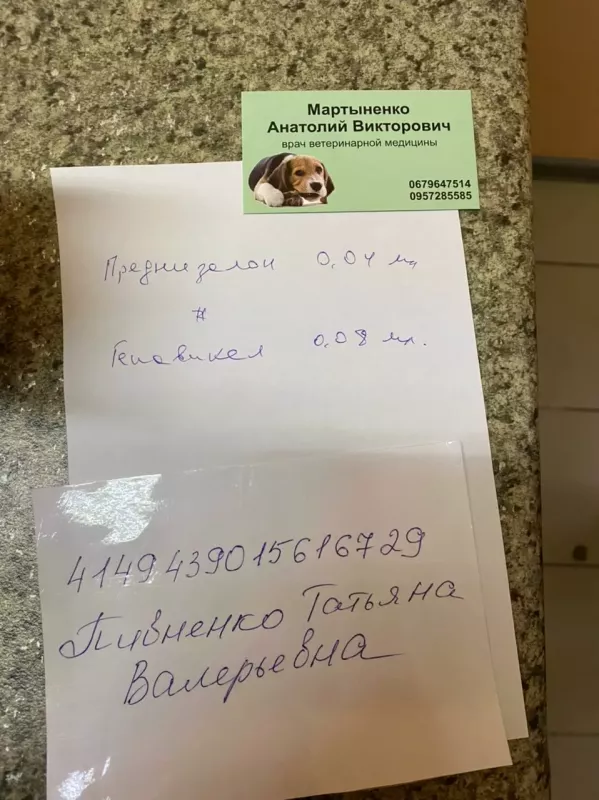 Мартыненко
Анатолий Викторович
врач ветеринарной медицины
0679647514
0957285585
Преднизолон 0,04 мл
#
Гепавикел 0,08 мл.
4149439015616729
Пивненко Татьяна
Валерьевна